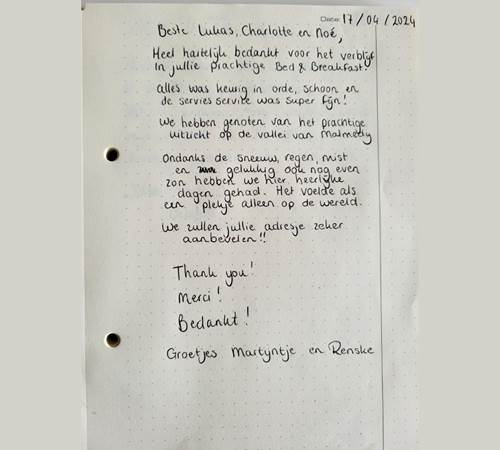 Date: 17/04/2024
Beste Lukas, Charlotte en Noé,
Heel hartelijk bedankt voor het verblijf
in jullie prachtige Bed & Breakfast!
Alles was keurig in orde, schoon en
de servies service was super fijn!
We hebben genoten van het prachtige
uitzicht op de vallei van Malmedy
Ondanks de sneeuw, regen, mist
en gelukkig ook nog even
zon hebben we hier heerlijke
dagen gehad. Het voelde als
een plekje alleen op de wereld.
We zullen jullie adresje zeker
aanbevelen!!
Thank you!
Merci!
Bedankt!
Groetjes Martijntje en Renske